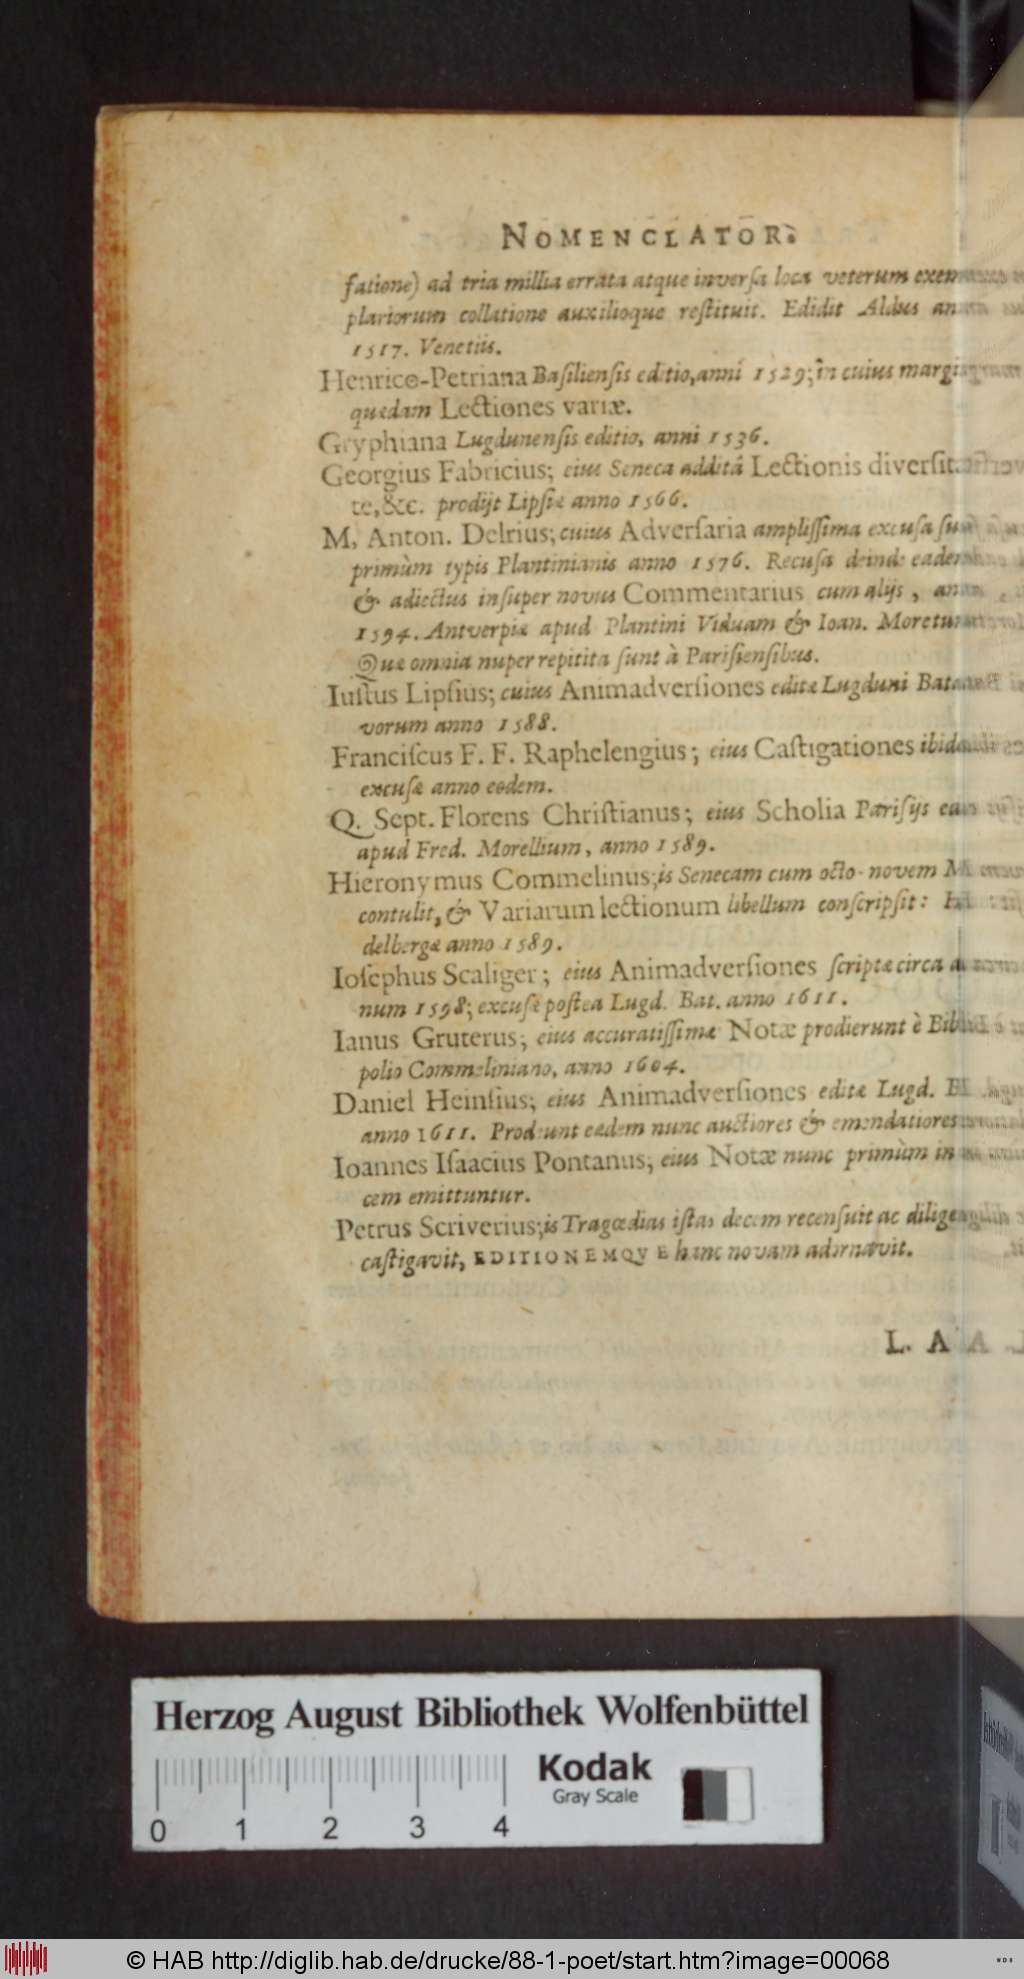 NOMENCLATOR.
fatione) ad tria millia errata atque inversa loca veterum exem
plariorum collatione auxilioque restituit. Edidit Aldus
1517. Venetiis.
Henrico-Petriana Basiliensis editio, anni 1529; in cuius margi
quædam Lectiones variæ.
Gryphiana Lugdunensis editio, anni 1536.
Georgius Fabricius; eius Seneca additâ Lectionis diversit
te, &c. prodijt Lipsiæ anno 1566.
M. Anton. Delrius; cuius Adversaria amplissima excusa
primùm typis Plantinianis anno 1576. Recusa deinde eadem
& adiectus insuper novus Commentarius cum alijs,
1594. Antverpiæ apud Plantini Viduam & Ioan. Moretum
Quæ omnia nuper repitita sunt à Parisiensibus.
Iustus Lipsius; cuius Animadversiones editæ Lugduni Bata
vorum anno 1588.
Franciscus F. F. Raphelengius; eius Castigationes ibidem
excusæ anno eodem.
Q. Sept. Florens Christianus; eius Scholia Parisijs
apud Fred. Morellium, anno 1589.
Hieronymus Commelinus; is Senecam cum octo-novem
contulit, & Variarum lectionum libellum conscripsit:
delbergæ anno 1589.
Iosephus Scaliger; eius Animadversiones scriptæ circa
num 1598; excusæ postea Lugd. Bat. anno 1611.
Ianus Gruterus; eius accuratissimæ Notæ prodierunt è
polio Commeliniano, anno 1604.
Daniel Heinsius; eius Animadversiones editæ Lugd.
anno 1611. Prodeunt eædem nunc auctiores & emendatiores
Ioannes Isaacius Pontanus; eius Notæ nunc primùm in
cem emittuntur.
Petrus Scriverius; is Tragœdias istas decem recensuit ac dilige
castigavit, EDITIONEMQVE hanc novam adornavit.
L. A
Herzog August Bibliothek Wolfenbüttel
Kodak
Gray Scale
0 1 2 3 4
© HAB http://diglib.hab.de/drucke/88-1-poet/start.htm?image=00068